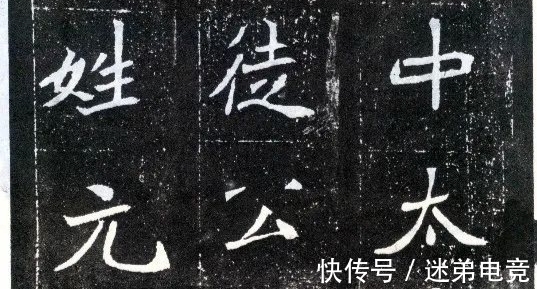 中太
徒公
姓元
快传号 / 迷弟电竞